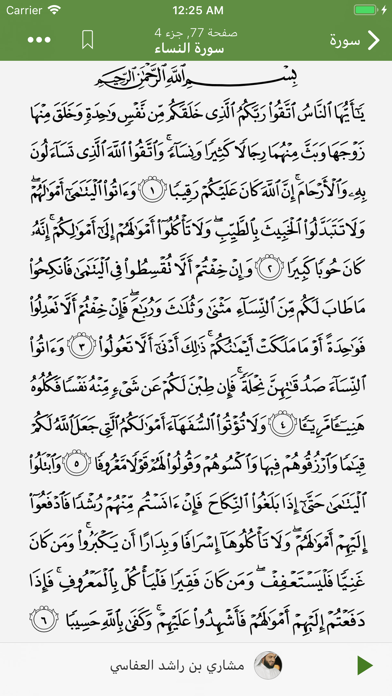 Carrier 12:25 AM
صفحة 77, جزء 4
سورة
سورة النساء
بِسْمِ ٱللَّهِ ٱلرَّحْمَٰنِ ٱلرَّحِيمِ
يَٰٓأَيُّهَا ٱلنَّاسُ ٱتَّقُوا۟ رَبَّكُمُ ٱلَّذِى خَلَقَكُم مِّن نَّفْسٍ وَٰحِدَةٍ وَخَلَقَ مِنْهَا
زَوْجَهَا وَبَثَّ مِنْهُمَا رِجَالًا كَثِيرًا وَنِسَآءً ۚ وَٱتَّقُوا۟ ٱللَّهَ ٱلَّذِى تَسَآءَلُونَ
بِهِۦ وَٱلْأَرْحَامَ ۚ إِنَّ ٱللَّهَ كَانَ عَلَيْكُمْ رَقِيبًا ١ وَءَاتُوا۟ ٱلْيَتَٰمَىٰٓ أَمْوَٰلَهُمْ ۖ
وَلَا تَتَبَدَّلُوا۟ ٱلْخَبِيثَ بِٱلطَّيِّبِ ۖ وَلَا تَأْكُلُوٓا۟ أَمْوَٰلَهُمْ إِلَىٰٓ أَمْوَٰلِكُمْ ۚ إِنَّهُۥ
كَانَ حُوبًا كَبِيرًا ٢ وَإِنْ خِفْتُمْ أَلَّا تُقْسِطُوا۟ فِى ٱلْيَتَٰمَىٰ فَٱنكِحُوا۟
مَا طَابَ لَكُم مِّنَ ٱلنِّسَآءِ مَثْنَىٰ وَثُلَٰثَ وَرُبَٰعَ ۖ فَإِنْ خِفْتُمْ أَلَّا تَعْدِلُوا۟
فَوَٰحِدَةً أَوْ مَا مَلَكَتْ أَيْمَٰنُكُمْ ۚ ذَٰلِكَ أَدْنَىٰٓ أَلَّا تَعُولُوا۟ ٣ وَءَاتُوا۟
ٱلنِّسَآءَ صَدُقَٰتِهِنَّ نِحْلَةً ۚ فَإِن طِبْنَ لَكُمْ عَن شَىْءٍ مِّنْهُ نَفْسًا فَكُلُوهُ
هَنِيٓـًٔا مَّرِيٓـًٔا ٤ وَلَا تُؤْتُوا۟ ٱلسُّفَهَآءَ أَمْوَٰلَكُمُ ٱلَّتِى جَعَلَ ٱللَّهُ لَكُمْ
قِيَٰمًا وَٱرْزُقُوهُمْ فِيهَا وَٱكْسُوهُمْ وَقُولُوا۟ لَهُمْ قَوْلًا مَّعْرُوفًا ٥ وَٱبْتَلُوا۟
ٱلْيَتَٰمَىٰ حَتَّىٰٓ إِذَا بَلَغُوا۟ ٱلنِّكَاحَ فَإِنْ ءَانَسْتُم مِّنْهُمْ رُشْدًا فَٱدْفَعُوٓا۟
إِلَيْهِمْ أَمْوَٰلَهُمْ ۖ وَلَا تَأْكُلُوهَآ إِسْرَافًا وَبِدَارًا أَن يَكْبَرُوا۟ ۚ وَمَن كَانَ
غَنِيًّا فَلْيَسْتَعْفِفْ ۖ وَمَن كَانَ فَقِيرًا فَلْيَأْكُلْ بِٱلْمَعْرُوفِ ۚ فَإِذَا
دَفَعْتُمْ إِلَيْهِمْ أَمْوَٰلَهُمْ فَأَشْهِدُوا۟ عَلَيْهِمْ ۚ وَكَفَىٰ بِٱللَّهِ حَسِيبًا ٦
مشاري بن راشد العفاسي